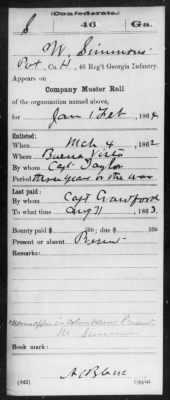 (Confederate.)
S 46 Ga.
W. Simmons
Pvt, Co. H, 46 Reg't Georgia Infantry.
Appears on
Company Muster Roll
of the organization named above,
for Jan & Feb, 1864.
Enlisted:
When Mch 4, 1862.
Where Buena Vista
By whom Capt Taylor
Period three years or the war
Last paid:
By whom Capt Crawford
To what time Aug 31, 1863.
Bounty paid $ 50; due $ 50
Present or absent Present
Remarks:
Book mark:
(642) Copyist.